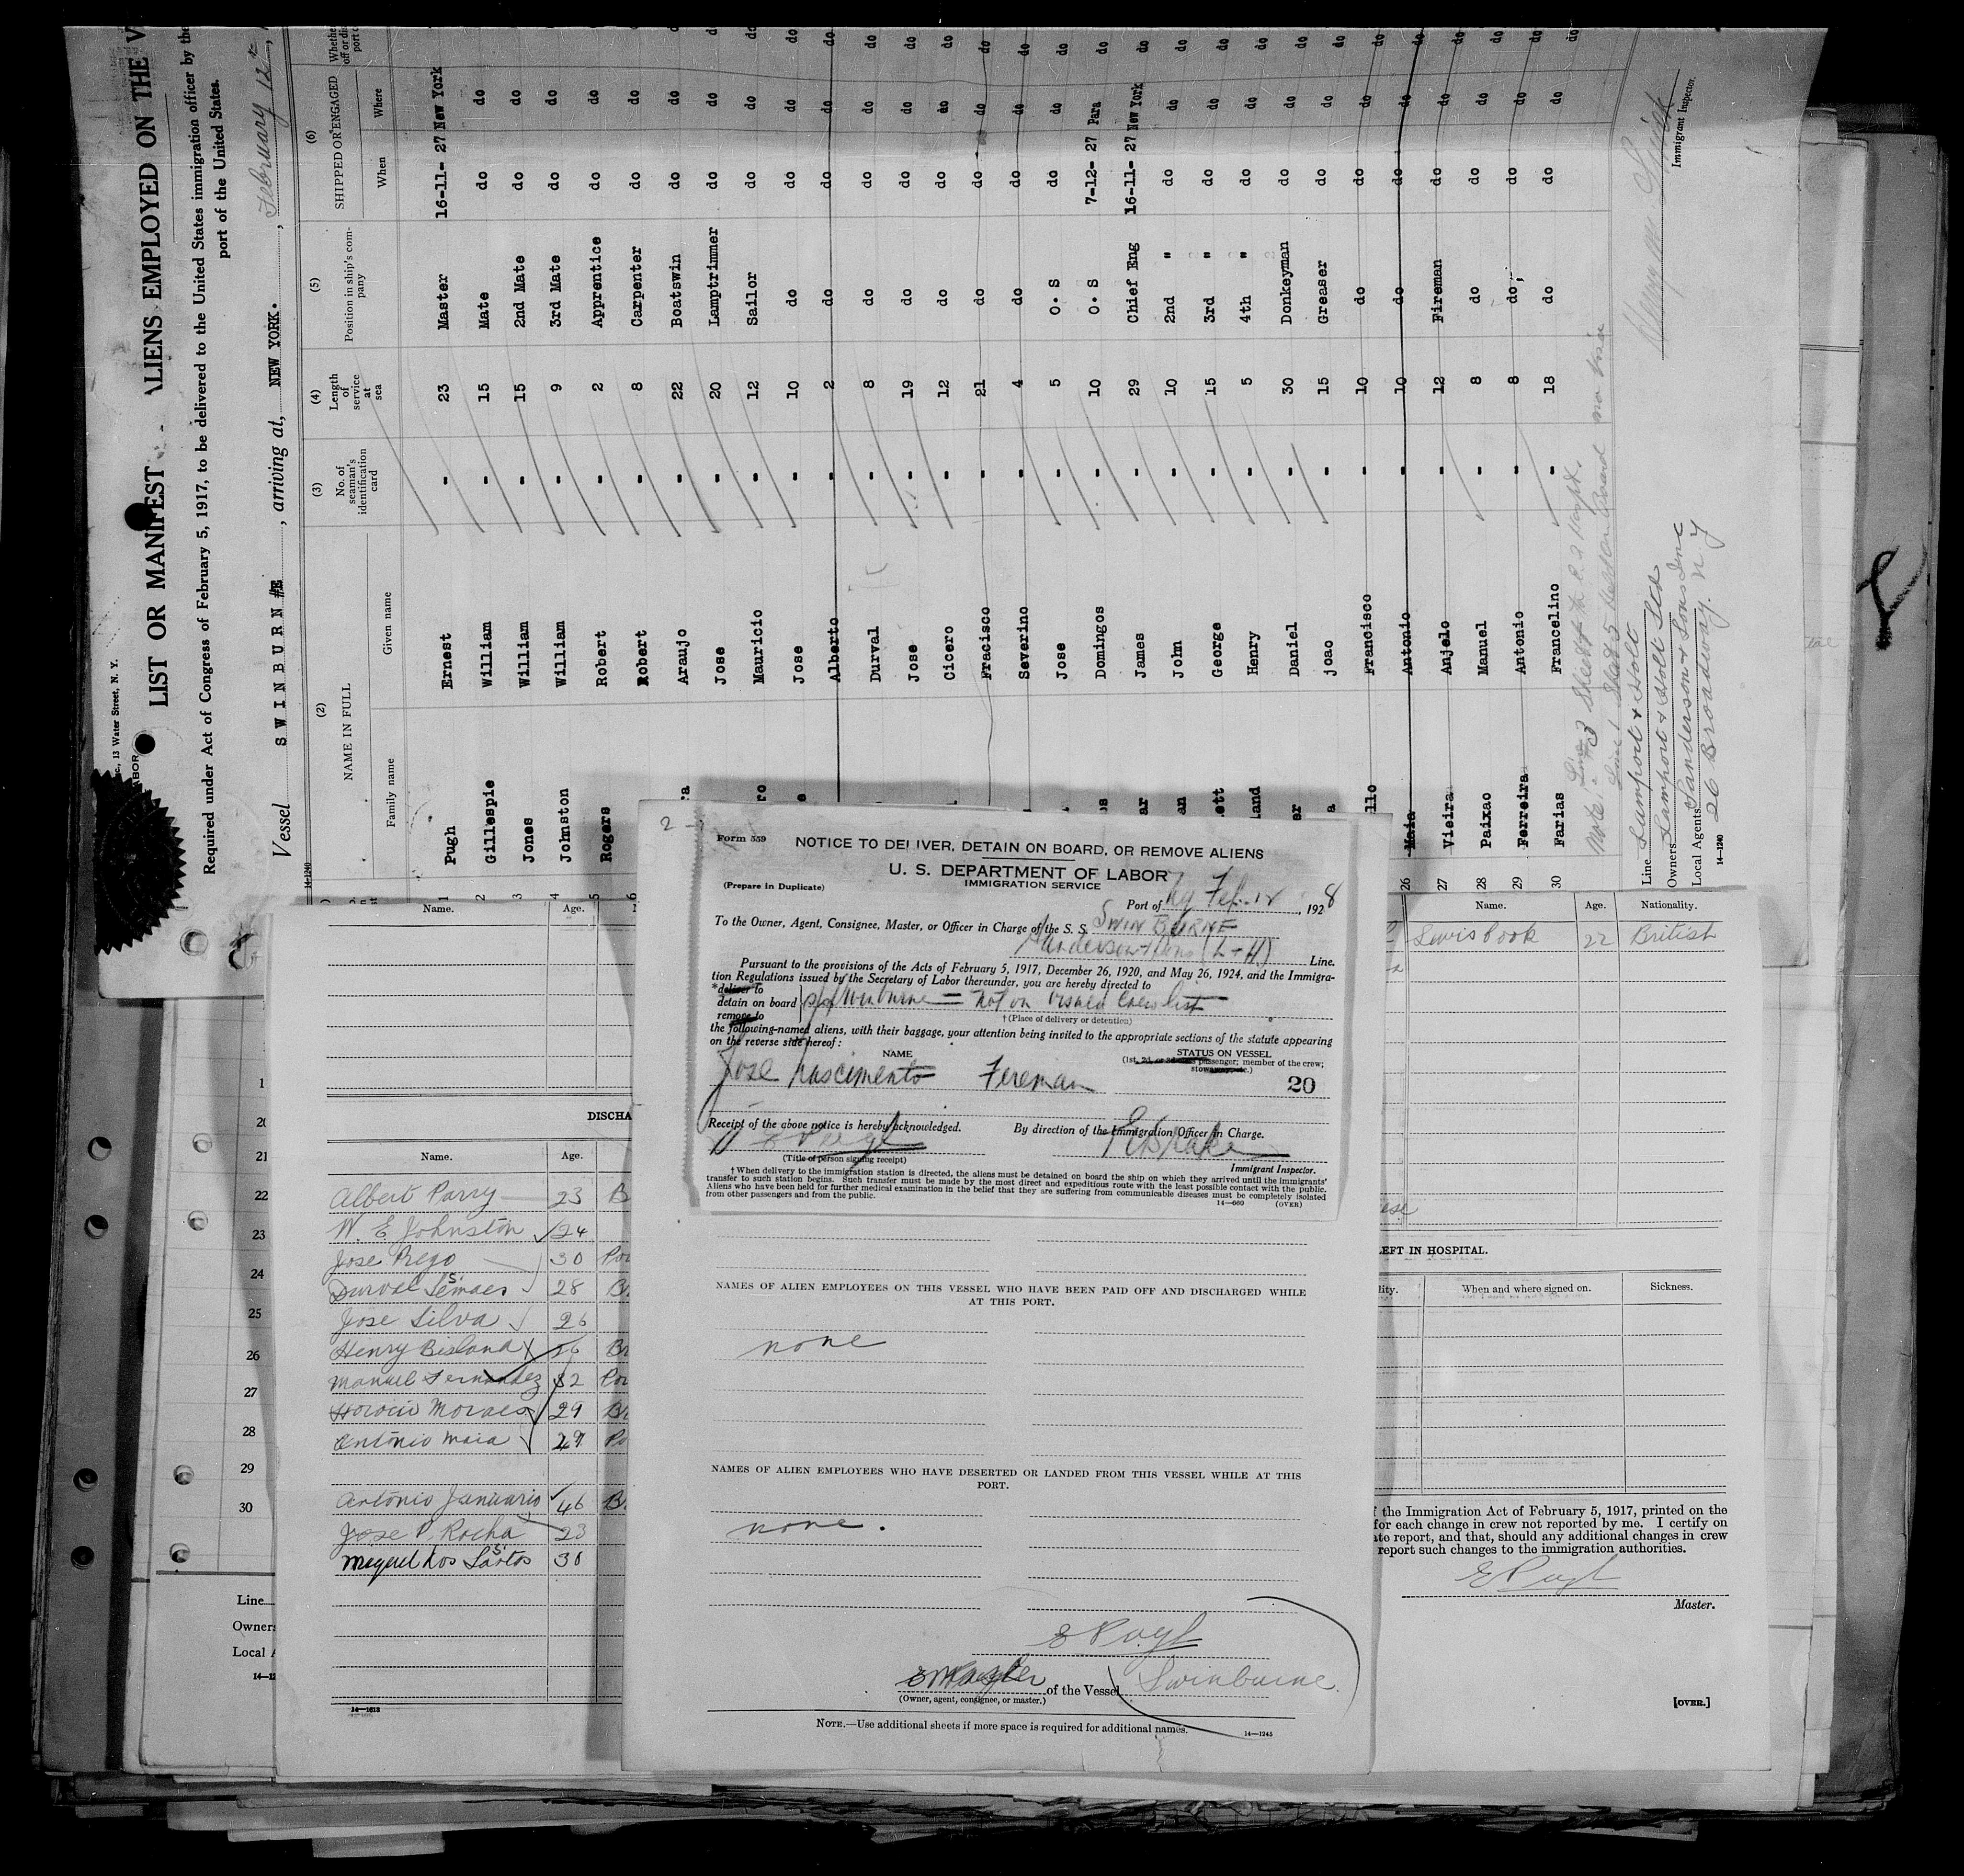 c., 13 Water Street, N. Y.
LABOR
LIST OR MANIFEST ALIENS EMPLOYED ON THE V
Required under Act of Congress of February 5, 1917, to be delivered to the United States immigration officer by the
port of the United States.
Vessel SWINBURN #E , arriving at, NEW YORK. , February 12th,
14-1240
(2) (3) (4) (5) (6)
NAME IN FULL No. of seaman's identification card Length of service at sea Position in ship's company SHIPPED OR ENGAGED Whethe
Family name Given name When Where
1 Pugh Ernest - 23 Master 16-11- 27 New York do
2 Gillespie William - 15 Mate do do do
3 Jones William - 15 2nd Mate do do do
4 Johnston William - 9 3rd Mate do do do
5 Rogers Robert - 2 Apprentice do do do
6 Robert - 8 Carpenter do do
Araujo - 22 Boatswin do do
Jose - 20 Lamptrimmer do do
Mauricio - 12 Sailor do do do
Jose - 10 do do do do
Alberto - 2 do do do do
Durval - 8 do do do do
Jose - 19 do do do do
Cicero - 12 do do do do
Fracisco - 21 do do do do
Severino - 4 do do do do
Jose - 5 O. S do do do
Domingos - 10 O. S 7-12- 27 Para do
James - 29 Chief Eng 16-11- 27 New York do
John - 10 2nd " do do do
George - 15 3rd " do do do
Henry - 5 4th " do do do
Daniel - 30 Donkeyman do do do
joao - 15 Greaser do do do
Francisco - 10 do do do do
26 Maia Antonio - 10 do do do do
27 Vieira Anjelo - 12 Fireman do do do
28 Paixao Manuel - 8 do do do do
29 Ferreira Antonio - 8 do, do do do
30 Farias Francelino - 18 do do do do
Line Lamport & Holt
Owners Lamport & Holt Ltd
Local Agents Sanderson & Sons Inc
26 Broadway. N Y
14-1240
Immigrant Inspector.
2
Form 559
NOTICE TO DELIVER, DETAIN ON BOARD, OR REMOVE ALIENS
U. S. DEPARTMENT OF LABOR
IMMIGRATION SERVICE
(Prepare in Duplicate)
Port of Ny Feb. 12, 1928
To the Owner, Agent, Consignee, Master, or Officer in Charge of the S. S. SWINBURNE
Sanderson & Sons (L + H) Line.
Pursuant to the provisions of the Acts of February 5, 1917, December 26, 1920, and May 26, 1924, and the Immigra-
tion Regulations issued by the Secretary of Labor thereunder, you are hereby directed to
*deliver to
detain on board s/s Swinburne = not on visaed crew list
remove to
†(Place of delivery or detention)
the following-named aliens, with their baggage, your attention being invited to the appropriate sections of the statute appearing
on the reverse side hereof:
NAME STATUS ON VESSEL
(1st, 2d, or 3d class passenger; member of the crew;
stowaway, etc.)
Jose Nascimento Fireman 20
Receipt of the above notice is hereby acknowledged. By direction of the Immigration Officer in Charge.
E Pugh
(Title of person signing receipt) Immigrant Inspector.
†When delivery to the immigration station is directed, the aliens must be detained on board the ship on which they arrived until the immigrants'
transfer to such station begins. Such transfer must be made by the most direct and expeditious route with the least possible contact with the public.
Aliens who have been held for further medical examination in the belief that they are suffering from communicable diseases must be completely isolated
from other passengers and from the public.
14-660 (OVER)
NAMES OF ALIEN EMPLOYEES ON THIS VESSEL WHO HAVE BEEN PAID OFF AND DISCHARGED WHILE
AT THIS PORT.
none
NAMES OF ALIEN EMPLOYEES WHO HAVE DESERTED OR LANDED FROM THIS VESSEL WHILE AT THIS
PORT.
none.
E Pugh
Master of the Vessel Swinburne
(Owner, agent, consignee, or master.)
NOTE.—Use additional sheets if more space is required for additional names.
14-1245
Name. Age.
DISCHA
Name. Age.
Albert Parry 23 B
W. E Johnston 24
Jose Rego 30 Por
Durval Simaes 28 B
Jose Silva 26
Henry Bisland 56 Br
Manuel Fernandez 32 Por
Horacio Moraes 29 Br
Antonio Maia 29 Po
Antonio Januario 46 B
Jose P. Rocha 23
Miguel dos Santos 30
14-1613
20
21
22
23
24
25
26
27
28
29
30
Line
Owners
Local A
14-12
Name. Age. Nationality.
Lewis Cook 22 British
LEFT IN HOSPITAL.
lity. When and where signed on. Sickness.
f the Immigration Act of February 5, 1917, printed on the
for each change in crew not reported by me. I certify on
ate report, and that, should any additional changes in crew
report such changes to the immigration authorities.
E Pugh
Master.
[OVER.]